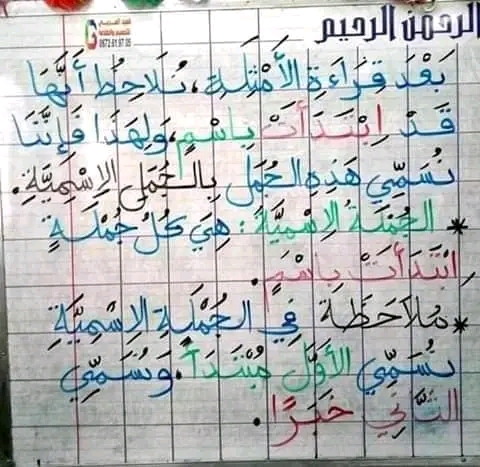 الرحمن الرحيم
0672.61.97.05
بَعْدَ قِرَاءَةِ الأَمْثِلَةِ، نُلَاحِظُ أَنَّهَا
قَدْ ابْتَدَأَتْ بِاسْمٍ، وَلِهَذَا فَإِنَّنَا
نُسَمِّي هَذِهِ الجُمَلَ بِالجُمَلِ الاِسْمِيَّةِ.
* الجُمْلَةُ الاِسْمِيَّةُ: هِيَ كُلُّ جُمْلَةٍ
ابْتَدَأَتْ بِاسْمٍ.
* مُلَاحَظَة فِي الجُمْلَةِ الاِسْمِيَّةِ
نُسَمِّي الأَوَّلَ مُبْتَدَأً. وَنُسَمِّي
الثَّانِي خَبَرًا.